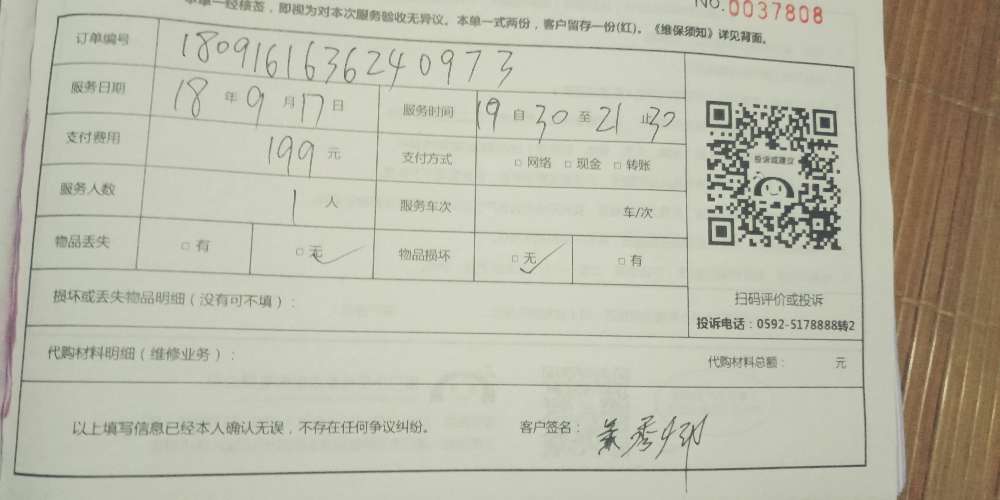 本单一经核签，即视为对本次服务验收无异议。本单一式两份，客户留存一份(红)。《维保须知》详见背面。
NO.0037808
订单编号 1809161636240973
服务日期 18年9月17日 服务时间 19自30至21止30
支付费用 199元 支付方式 □网络 □现金 □转账
服务人数 1人 服务车次 车/次
物品丢失 □有 □无✓ 物品损坏 □无✓ □有
投诉或建议
扫码评价或投诉
投诉电话：0592-5178888转2
损坏或丢失物品明细（没有可不填）：
代购材料明细（维修业务）： 代购材料总额： 元
以上填写信息已经本人确认无误，不存在任何争议纠纷。 客户签名：